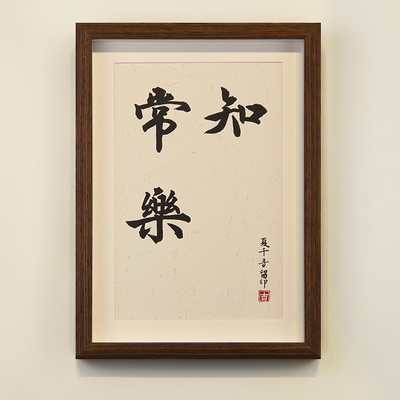 知
常樂
夏千音留印